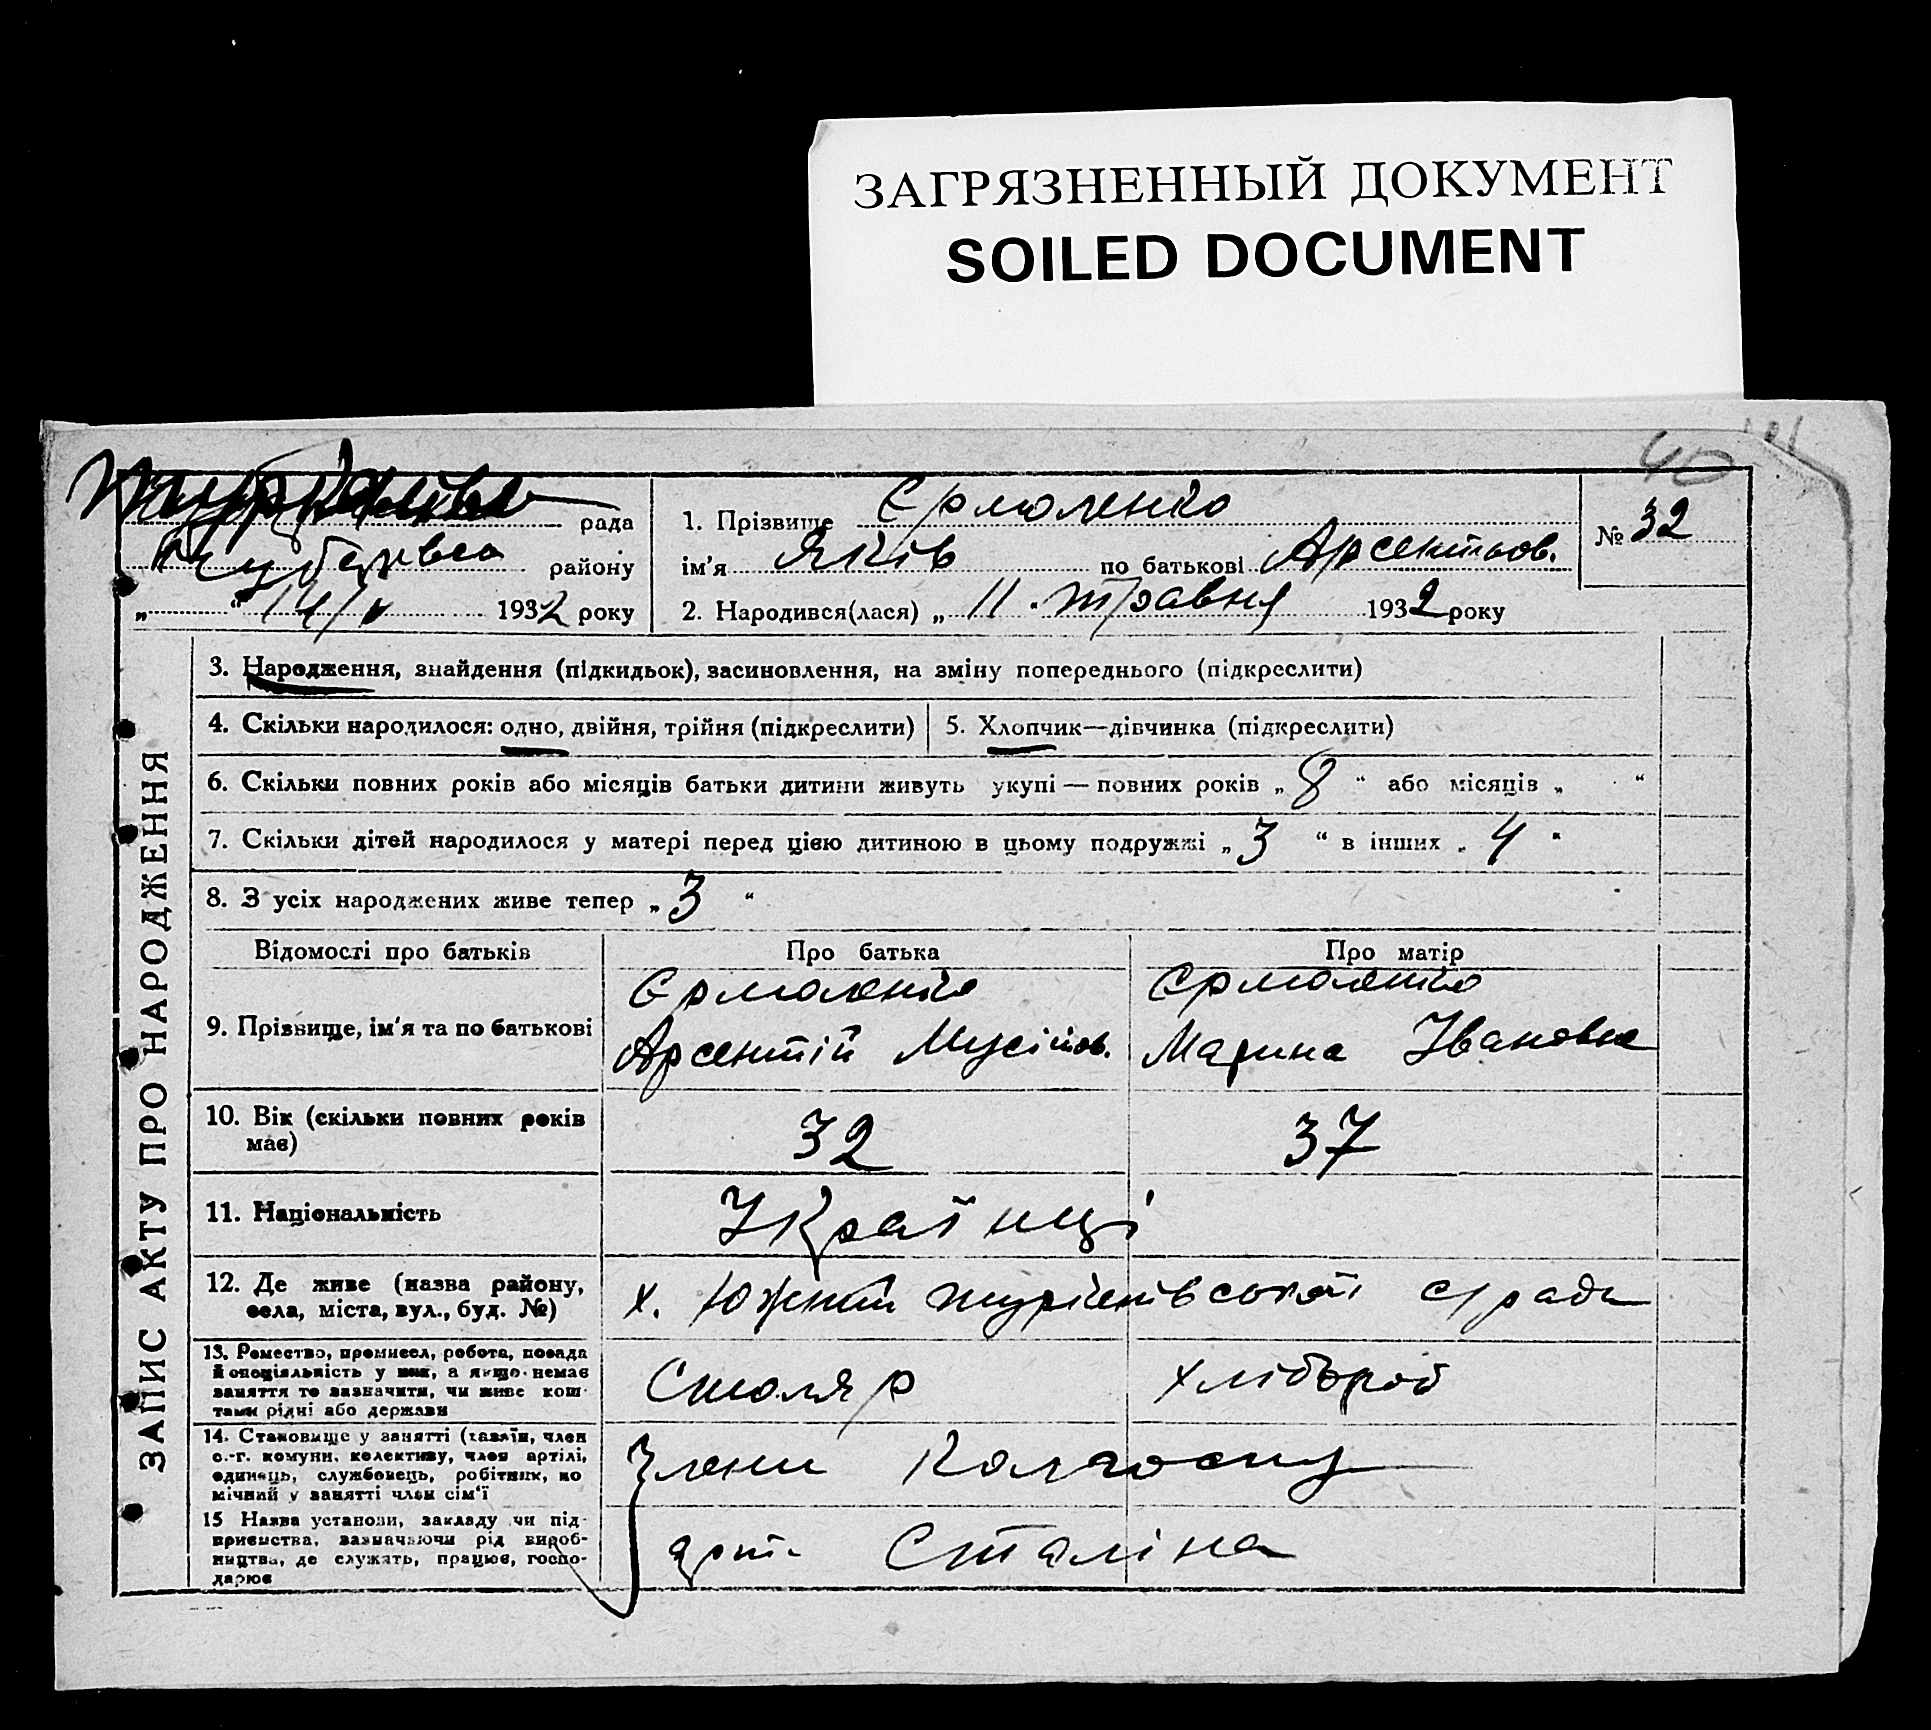 ЗАГРЯЗНЕННЫЙ ДОКУМЕНТ
SOILED DOCUMENT
40
рада
району
„ “ 14/V 1932 року
1. Прізвище Єрмоленко
ім'я Яків по батькові Арсентьов.
№ 32
2. Народився(лася) „ 11. травня 1932 року
ЗАПИС АКТУ ПРО НАРОДЖЕННЯ
3. Народження, знайдення (підкидьок), засиновлення, на зміну попереднього (підкреслити)
4. Скільки народилося: одно, двійня, трійня (підкреслити)
5. Хлопчик—дівчинка (підкреслити)
6. Скільки повних років або місяців батьки дитини живуть укупі — повних років „ 8 “ або місяців „ “
7. Скільки дітей народилося у матері перед цією дитиною в цьому подружжі „ 3 “ в інших „ 4 “
8. З усіх народжених живе тепер „ 3 “
Відомості про батьків
Про батька
Про матір
9. Прізвище, ім'я та по батькові
Єрмоленко
Арсентій Мусійов.
Єрмоленко
Марина Івановна
10. Вік (скільки повних років
має)
32
37
11. Національність
Українці
12. Де живе (назва району,
села, міста, вул., буд. №)
х. Южний с/ради
13. Ремество, промисел, робота, посада
й спеціяльність у них, а якщо немає
заняття то зазначити, чи живе кош-
тами рідні або держави
Столяр
хлібороб
14. Становище у занятті (хазяїн, член
с.-г. комуни, колективу, член артілі,
одинець, службовець, робітник, по
мічний у занятті член сім'ї
Члени Колгоспу
15 Назва установи, закладу чи під-
приємства, зазначаючи рід вироб-
ництва, де служать, працює, госпо-
дарює
арт. Сталіна